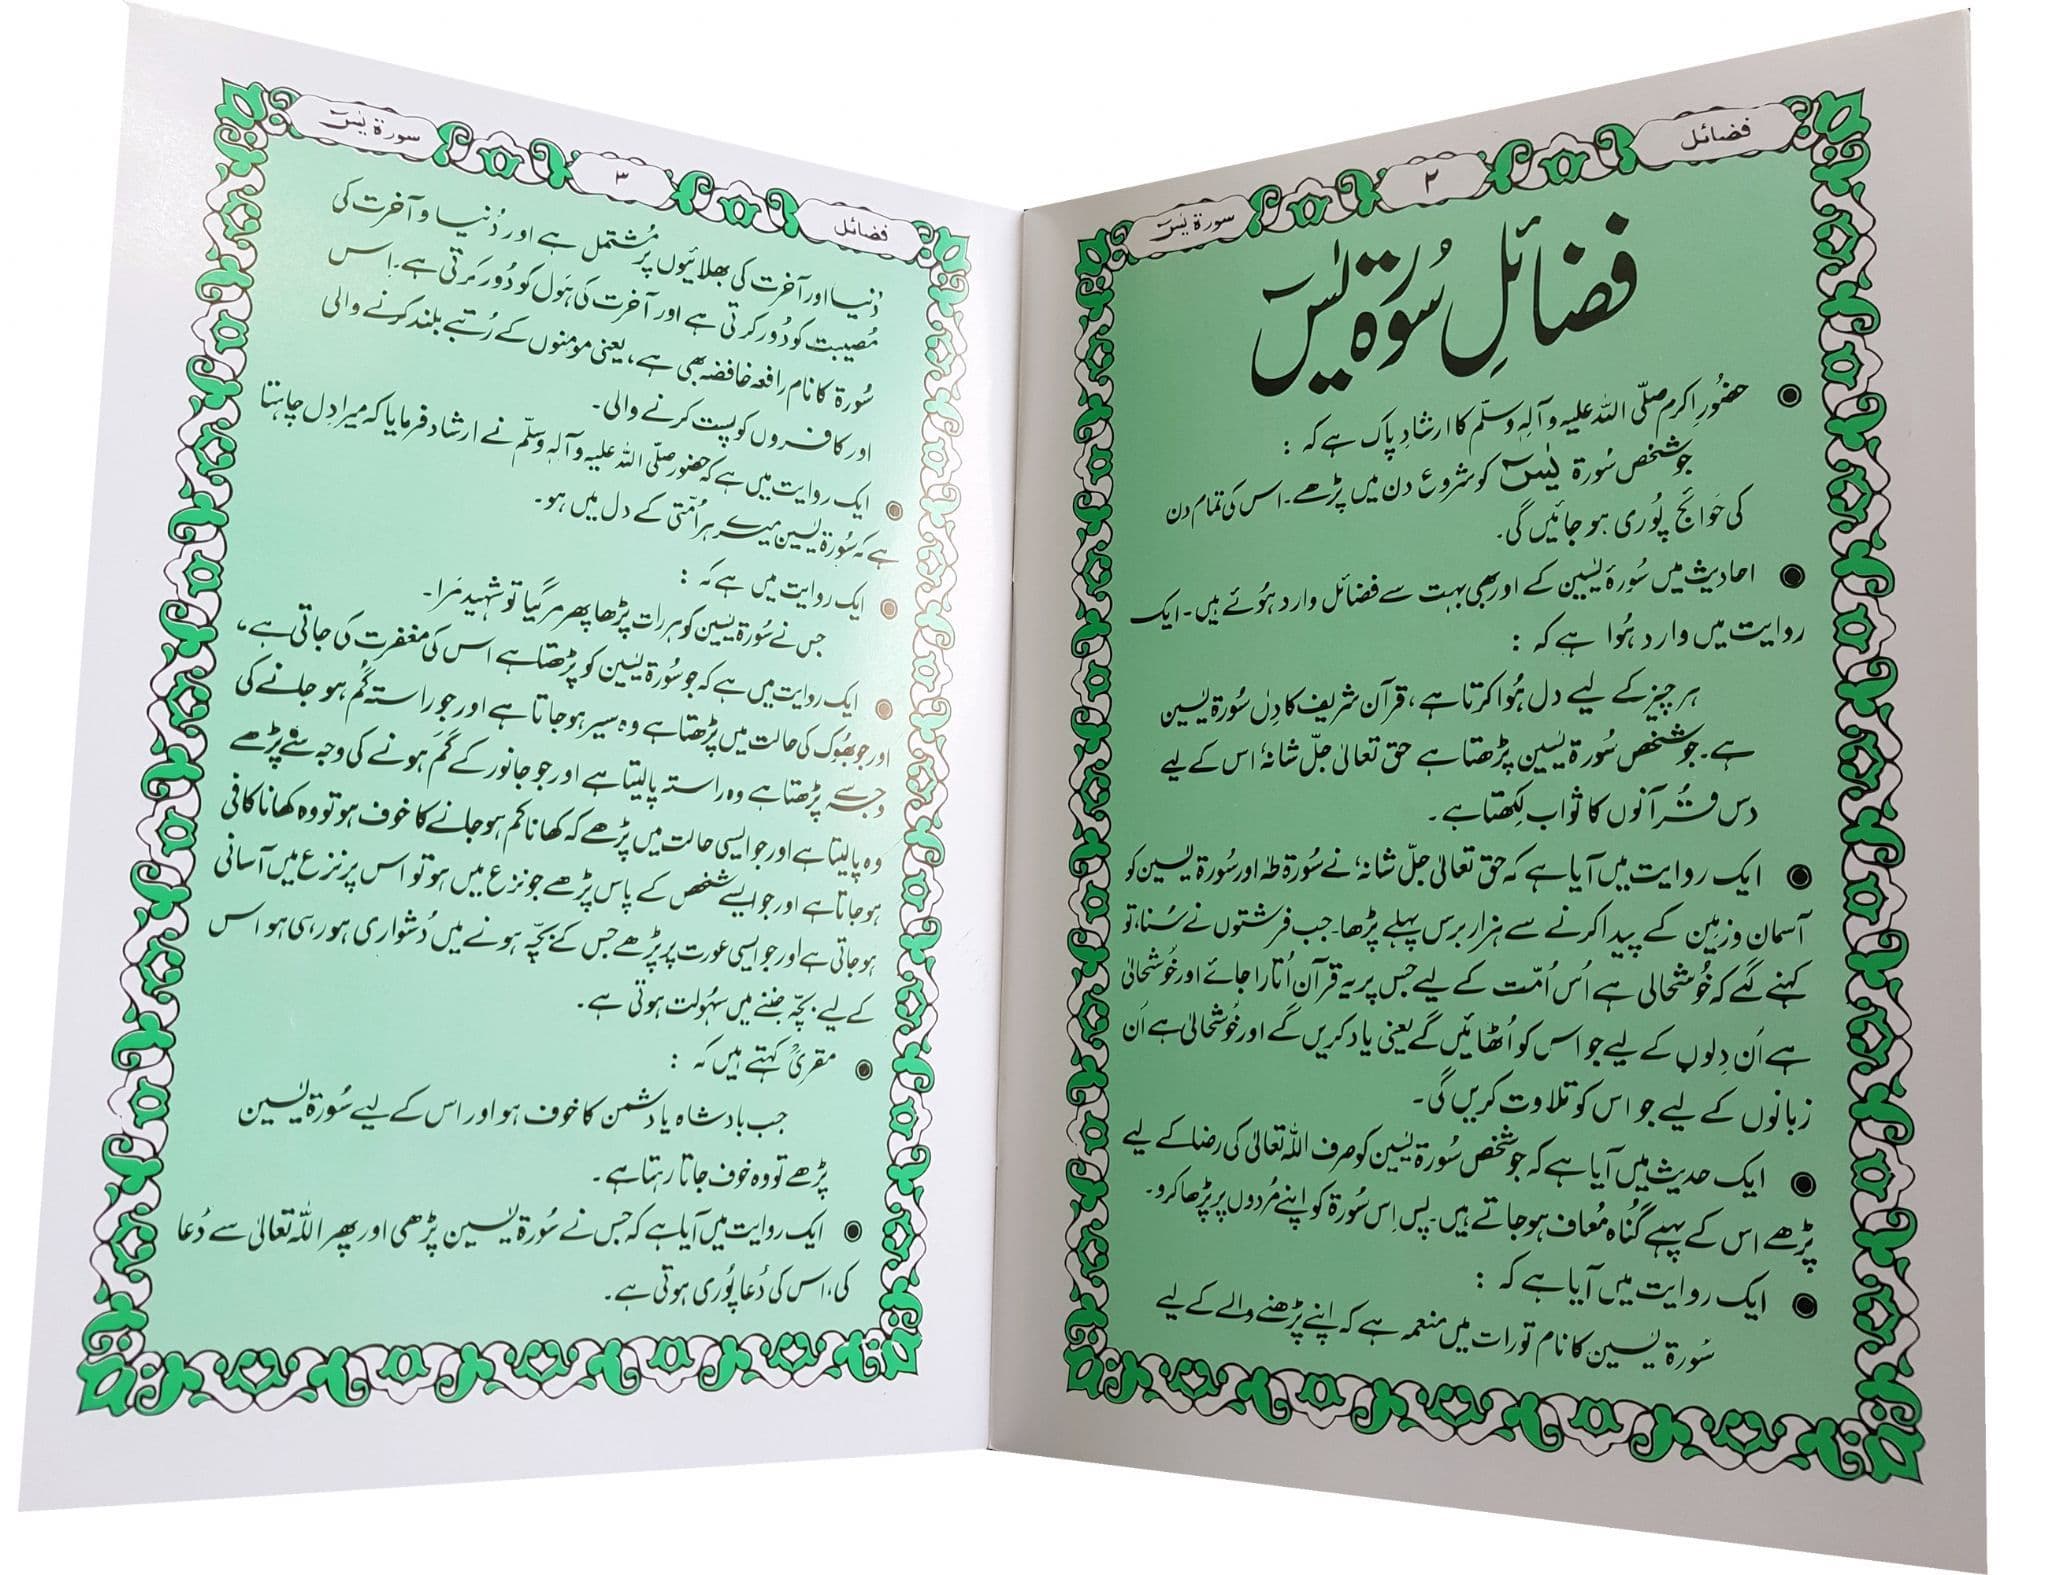 فضائل
۲
سورۃ یٰسٓ
فضائلِ سُورۃ یٰسٓ
حضُورِ اکرم صلّی اللہ علیہ وآلہٖ وسلّم کا ارشادِ پاک ہے کہ :
جو شخص سُورۃ یٰسٓ کو شروع دن میں پڑھے۔ اس کی تمام دن
کی حَوائج پُوری ہو جائیں گی۔
احادیث میں سُورۂ یٰسین کے اور بھی بہت سے فضائل وارد ہُوئے ہیں۔ ایک
روایت میں وارد ہُوا ہے کہ :
ہر چیز کے لیے دل ہُوا کرتا ہے، قرآن شریف کا دِل سُورۃ یٰسین
ہے۔ جو شخص سُورۃ یٰسین پڑھتا ہے حق تعالیٰ جلّ شانہٗ اس کے لیے
دس قُرآنوں کا ثواب لِکھتا ہے۔
ایک روایت میں آیا ہے کہ حق تعالیٰ جلّ شانہٗ نے سُورۃ طٰہٰ اور سُورۃ یٰسین کو
آسمان و زمین کے پیدا کرنے سے ہزار برس پہلے پڑھا۔ جب فرشتوں نے سُنا، تو
کہنے لگے کہ خُوشحالی ہے اُس اُمّت کے لیے جس پر یہ قرآن اُتارا جائے اور خُوشحالی
ہے اُن دِلوں کے لیے جو اس کو اُٹھائیں گے یعنی یاد کریں گے اور خُوشحالی ہے اُن
زبانوں کے لیے جو اس کو تلاوت کریں گی۔
ایک حدیث میں آیا ہے کہ جو شخص سُورۃ یٰسین کو صرف اللہ تعالیٰ کی رضا کے لیے
پڑھے اس کے پہلے گُناہ مُعاف ہو جاتے ہیں۔ پس اِس سُورۃ کو اپنے مُردوں پر پڑھا کرو۔
ایک روایت میں آیا ہے کہ :
سُورۃ یٰسین کا نام تورات میں منعمہ ہے کہ اپنے پڑھنے والے کے لیے
فضائل
۳
سورۃ یٰسٓ
دُنیا اور آخرت کی بھلائیوں پر مُشتمل ہے اور دُنیا و آخرت کی
مُصیبت کو دُور کرتی ہے اور آخرت کی ہَول کو دُور کرتی ہے۔ اِس
سُورۃ کا نام رافعہ خافضہ بھی ہے، یعنی مومنوں کے رُتبے بلند کرنے والی
اور کافروں کو پست کرنے والی۔
ایک روایت میں ہے کہ حضُور صلّی اللہ علیہ وآلہٖ وسلّم نے ارشاد فرمایا کہ میرا دل چاہتا
ہے کہ سُورۃ یٰسین میرے ہر اُمّتی کے دل میں ہو۔
ایک روایت میں ہے کہ :
جس نے سُورۃ یٰسین کو ہر رات پڑھا پھر مر گیا تو شہید مَرا۔
ایک روایت میں ہے کہ جو سُورۃ یٰسین کو پڑھتا ہے اس کی مغفرت کی جاتی ہے،
اور جو بھُوک کی حالت میں پڑھتا ہے وہ سیر ہو جاتا ہے اور جو راستہ گُم ہو جانے کی
وجہ سے پڑھتا ہے وہ راستہ پا لیتا ہے اور جو جانور کے گُم ہونے کی وجہ سے پڑھے
وہ پا لیتا ہے اور جو ایسی حالت میں پڑھے کہ کھانا کم ہو جانے کا خوف ہو تو وہ کھانا کافی
ہو جاتا ہے اور جو ایسے شخص کے پاس پڑھے جو نزع میں ہو تو اس پر نزع میں آسانی
ہو جاتی ہے اور جو ایسی عورت پر پڑھے جس کے بچّہ ہونے میں دُشواری ہو رہی ہو اس
کے لیے بچّہ جننے میں سہُولت ہوتی ہے۔
مقریؒ کہتے ہیں کہ :
جب بادشاہ یا دشمن کا خوف ہو اور اس کے لیے سُورۃ یٰسین
پڑھے تو وہ خوف جاتا رہتا ہے۔
ایک روایت میں آیا ہے کہ جس نے سُورۃ یٰسین پڑھی اور پھر اللہ تعالیٰ سے دُعا
کی، اس کی دُعا پُوری ہوتی ہے۔